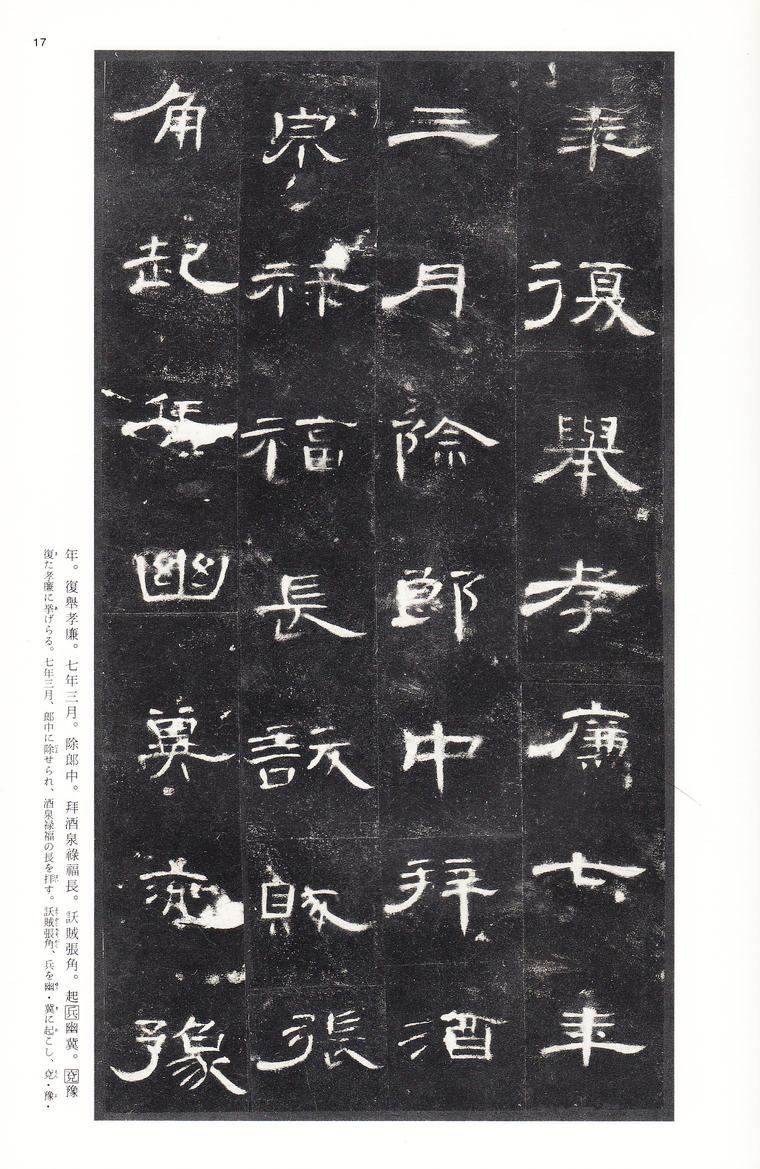 17
年復舉孝廉七年
三月除郎中拜酒
泉祿福長訞賊張
角起兵幽冀兗豫
年。復舉孝廉。七年三月。除郎中。拜酒泉祿福長。訞賊張角。起兵幽冀。兗豫
復た孝廉に挙げらる。七年三月、郎中に除せられ、酒泉禄福の長を拝す。訞賊張角、兵を幽・冀に起こし、兗・豫・